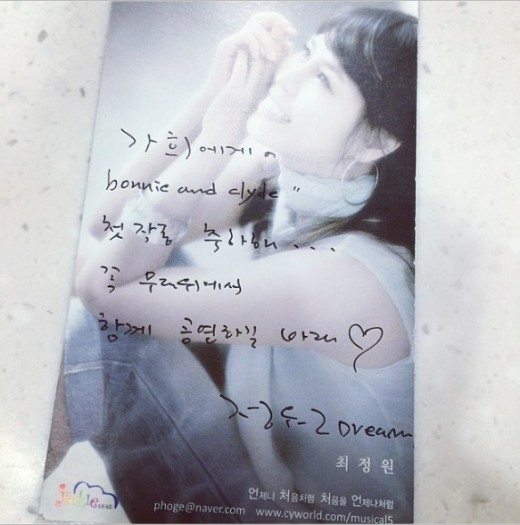 가희에게 "
bonnie and clyde "
첫 작품 축하해...
꼭 무대위에서
함께 공연하길 바래♡
Dream
최정원
언제나 처음처럼 처음을 언제나처럼
phoge@naver.com www.cyworld.com/musical5